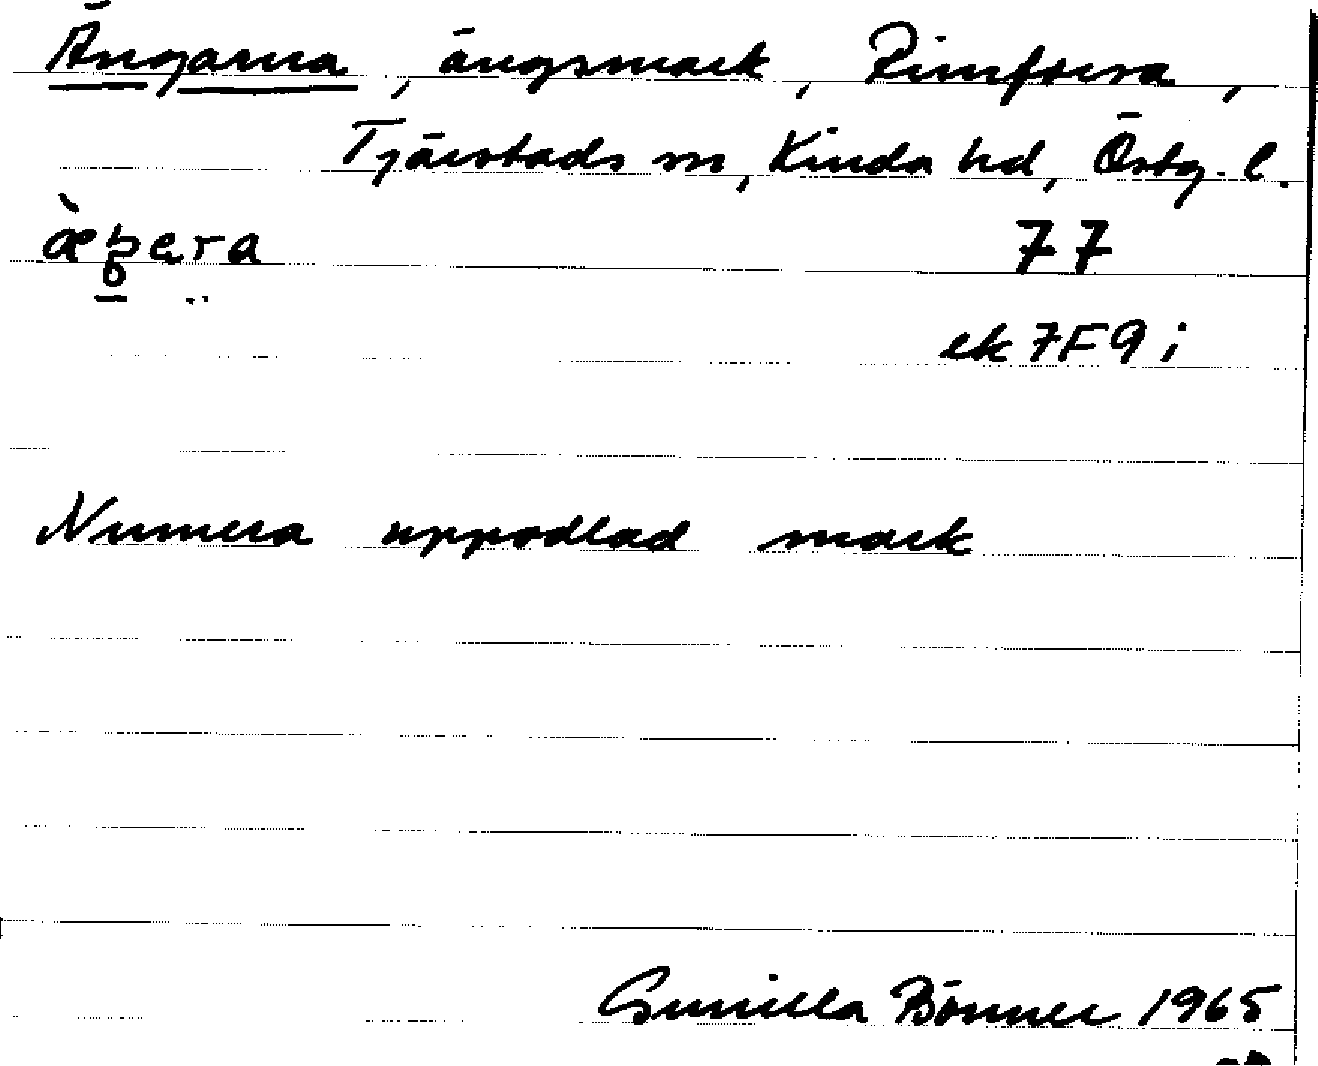 Ängarna, ängsmark, Rimforsa,
Tjärstads sn, Kinda hd, Östg. l.
77
ek 7F9i
Numera uppodlad mark
Gunilla Bönner 1965